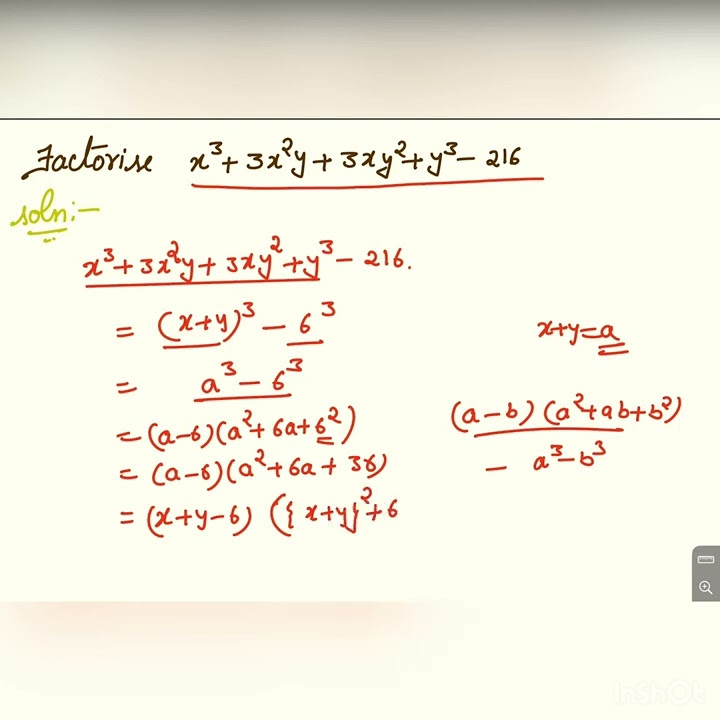 Factorise x³ + 3x²y + 3xy² + y³ - 216
soln:-
x³ + 3x²y + 3xy² + y³ - 216.
= (x+y)³ - 6³
x+y=a
= a³ - 6³
= (a-6)(a² + 6a + 6²)
(a-b)(a²+ab+b²)
= (a-6)(a² + 6a + 36)
- a³-b³
= (x+y-6) ({x+y}² + 6
InShOt